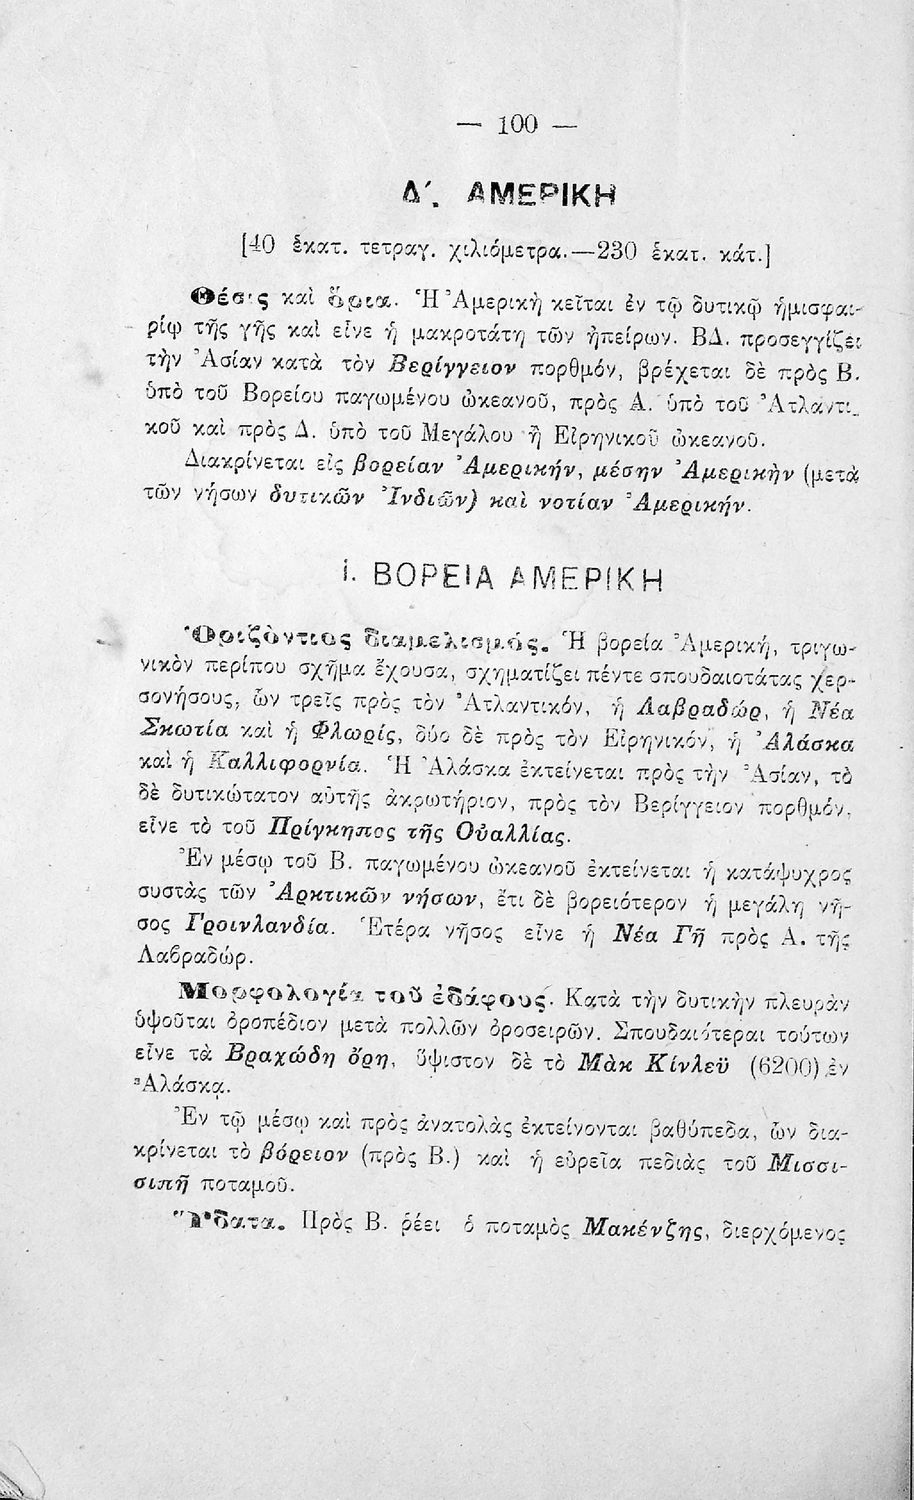 — 100 —
Δ΄. ΑΜΕΡΙΚΗ
[40 ἑκατ. τετραγ. χιλιόμετρα.—230 ἑκατ. κάτ.]
Θέσις καὶ ὅρια. Ἡ Ἀμερικὴ κεῖται ἐν τῷ δυτικῷ ἡμισφαι-
ρίῳ τῆς γῆς καὶ εἶνε ἡ μακροτάτη τῶν ἠπείρων. ΒΔ. προσεγγίζει
τὴν Ἀσίαν κατὰ τὸν Βερίγγειον πορθμόν, βρέχεται δὲ πρὸς Β.
ὑπὸ τοῦ Βορείου παγωμένου ὠκεανοῦ, πρὸς Α. ὑπὸ τοῦ Ἀτλαντι-
κοῦ καὶ πρὸς Δ. ὑπὸ τοῦ Μεγάλου ἢ Εἰρηνικοῦ ὠκεανοῦ.
Διακρίνεται εἰς βορείαν Ἀμερικήν, μέσην Ἀμερικὴν (μετὰ
τῶν νήσων δυτικῶν Ἰνδιῶν) καὶ νοτίαν Ἀμερικήν.
1. ΒΟΡΕΙΑ ΑΜΕΡΙΚΗ
Ὁριζόντιος διαμελισμός. Ἡ βορεία Ἀμερική, τριγω-
νικὸν περίπου σχῆμα ἔχουσα, σχηματίζει πέντε σπουδαιοτάτας χερ-
σονήσους, ὧν τρεῖς πρὸς τὸν Ἀτλαντικόν, ἡ Λαβραδώρ, ἡ Νέα
Σκωτία καὶ ἡ Φλωρίς, δύο δὲ πρὸς τὸν Εἰρηνικόν, ἡ Ἀλάσκα
καὶ ἡ Καλλιφορνία. Ἡ Ἀλάσκα ἐκτείνεται πρὸς τὴν Ἀσίαν, τὸ
δὲ δυτικώτατον αὐτῆς ἀκρωτήριον, πρὸς τὸν Βερίγγειον πορθμόν,
εἶνε τὸ τοῦ Πρίγκηπος τῆς Οὐαλλίας.
Ἐν μέσῳ τοῦ Β. παγωμένου ὠκεανοῦ ἐκτείνεται ἡ κατάψυχρος
συστὰς τῶν Ἀρκτικῶν νήσων, ἔτι δὲ βορειότερον ἡ μεγάλη νῆ-
σος Γροινλανδία. Ἑτέρα νῆσος εἶνε ἡ Νέα Γῆ πρὸς Α. τῆς
Λαβραδώρ.
Μορφολογία τοῦ ἐδάφους. Κατὰ τὴν δυτικὴν πλευρὰν
ὑψοῦται ὀροπέδιον μετὰ πολλῶν ὀροσειρῶν. Σπουδαιότεραι τούτων
εἶνε τὰ Βραχώδη ὄρη, ὕψιστον δὲ τὸ Μὰκ Κίνλεϋ (6200) ἐν
Ἀλάσκᾳ.
Ἐν τῷ μέσῳ καὶ πρὸς ἀνατολὰς ἐκτείνονται βαθύπεδα, ὧν δια-
κρίνεται τὸ βόρειον (πρὸς Β.) καὶ ἡ εὐρεῖα πεδιὰς τοῦ Μισσι-
σιπῆ ποταμοῦ.
Ὕδατα. Πρὸς Β. ῥέει ὁ ποταμὸς Μακένζης, διερχόμενος